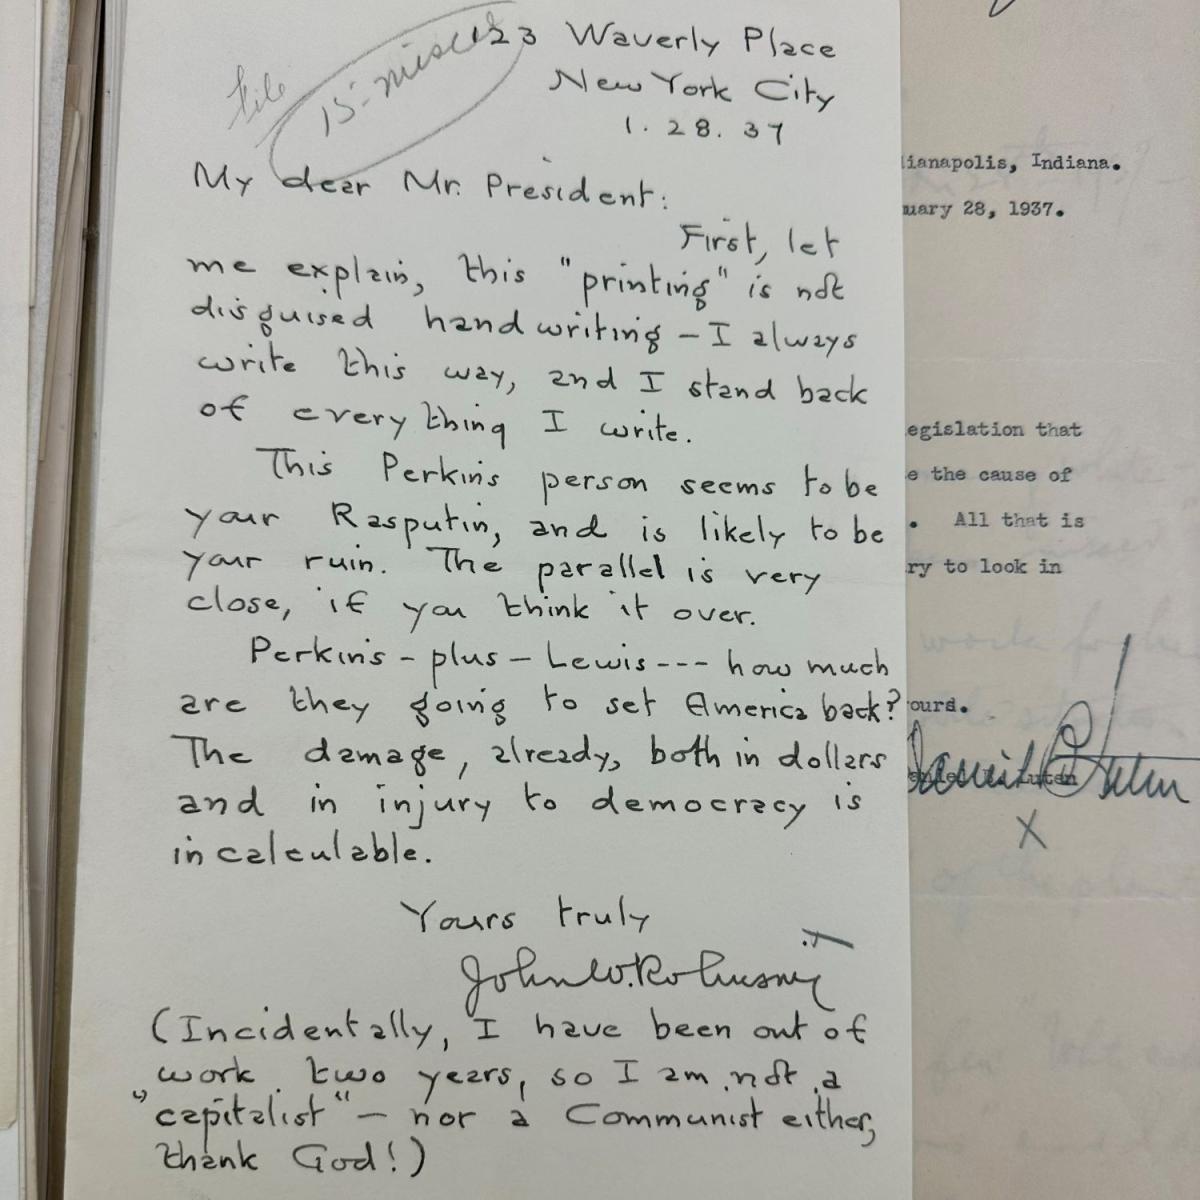 file
15-misc
123 Waverly Place
New York City
1. 28. 37
My dear Mr. President:
First, let
me explain, this "printing" is not
disguised handwriting – I always
write this way, and I stand back
of everything I write.
This Perkins person seems to be
your Rasputin, and is likely to be
your ruin. The parallel is very
close, if you think it over.
Perkins – plus – Lewis --- how much
are they going to set America back?
The damage, already, both in dollars
and in injury to democracy is
incalculable.
Yours truly
John W. Robinson
(Incidentally, I have been out of
work two years, so I am not a
"capitalist" – nor a Communist either,
thank God!)
ianapolis, Indiana.
uary 28, 1937.
egislation that
e the cause of
. All that is
ry to look in
ours.
Luten
X